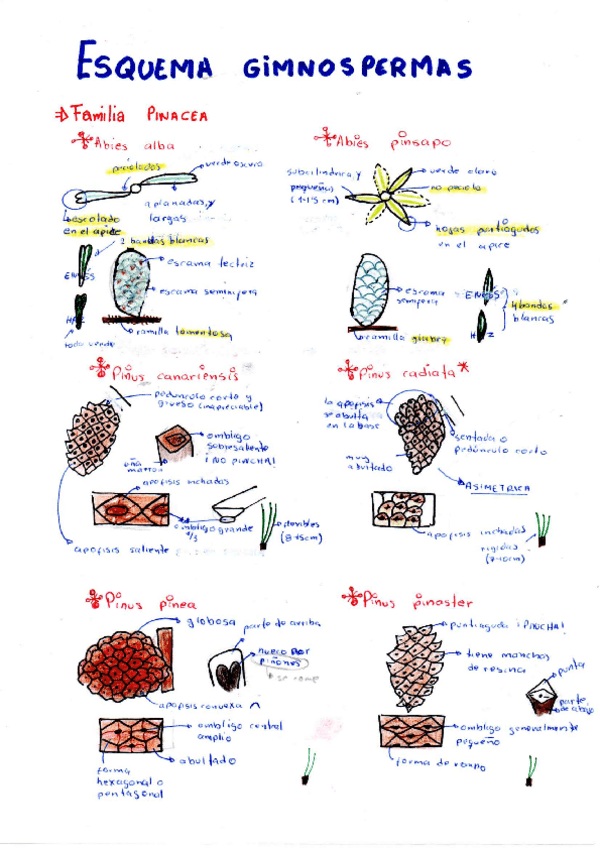 ESQUEMA GIMNOSPERMAS
⇒ Familia PINACEA
Abies alba
Abies pinsapo
peciolados
verde oscuro
aplanadas, y
largas
escotado
en el apice
2 bandas blancas
ENVÉS
HAZ
todo verde
escama tectriz
escama seminifera
ramilla tomentosa
subcilindrica, y
pequeñas
(1-1'5 cm)
verde claro
no peciolo
hojas puntiagudos
en el apice
escama
ramilla glabra
ENVÉS
HAZ
4 bandas
blancas
Pinus canariensis
Pinus radiata*
pedunculo corto y
grueso (inapreciable)
ombligo
sobresaliente
¡NO PINCHA!
uña
marron
apofisis inchadas
ombligo grande
1/3
apofisis saliente
la apofisis
se abulta
en la base
muy
abultado
sentada o
pedúnculo corto
ASIMETRICA
apofisis inchadas
rigidas
Pinus pinea
Pinus pinaster
globosa
parte de arriba
hueco por
piñones
se rompe
apofisis convexa ∩
ombligo central
amplio
abultado
forma
hexagonal o
pentagonal
puntiaguda ¡PINCHA!
tiene manchas
de resina
punta
parte
de abajo
ombligo generalmente
pequeño
forma de rombo